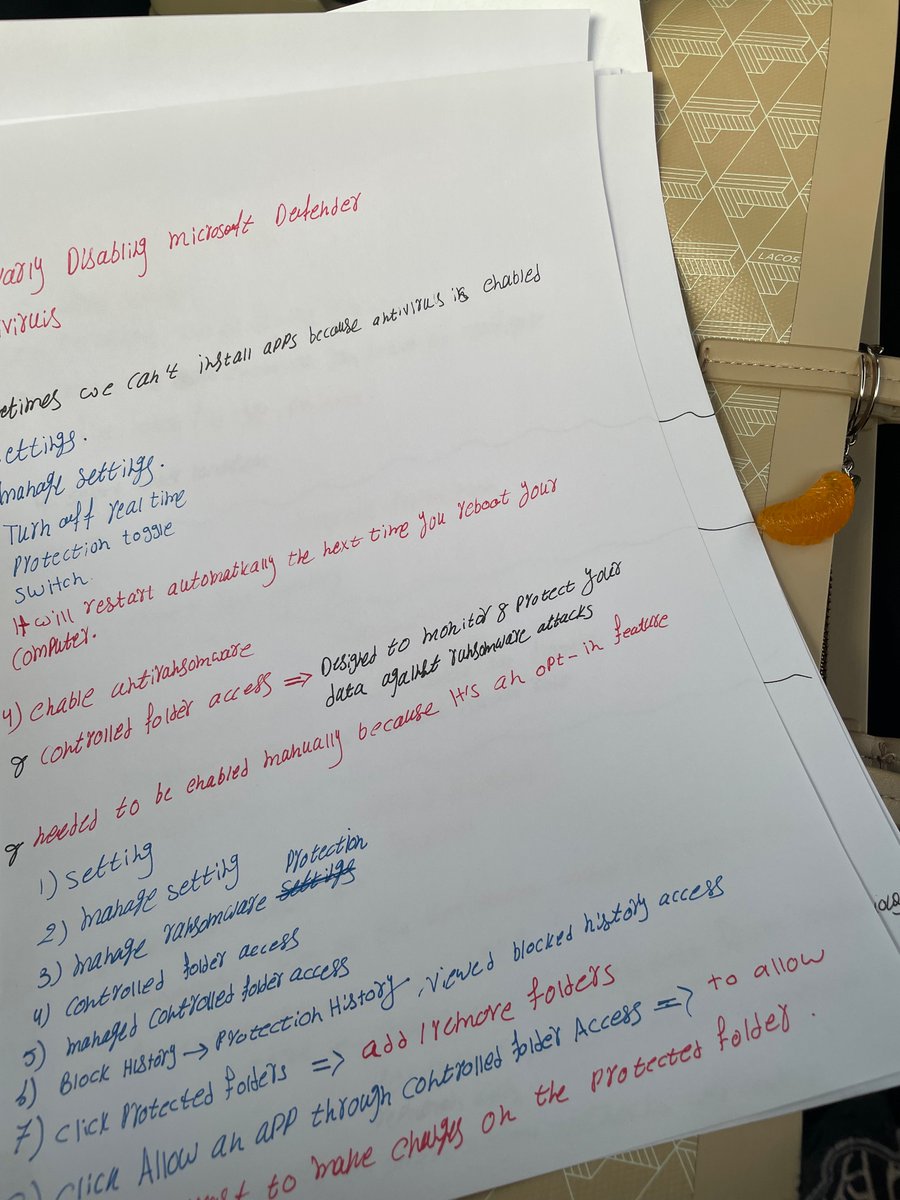 Disabling microsoft Defender
we can't install apps because antivirus is enabled
manage settings.
Turn off real time
protection toggle
switch.
It will restart automatically the next time you reboot your
computer.
4) enable antiransomware
& controlled folder access ⇒ Designed to monitor & protect your
data against ransomware attacks
& needed to be enabled manually because It's an opt-in feature
1) setting
2) manage setting
3) manage ransomware protection
4) controlled folder access
5) managed controlled folder access
6) Block History → Protection History, viewed blocked history access
7) click protected folders ⇒ add/remove folders
click Allow an app through controlled folder Access ⇒ to allow
to make changes on the protected folder.
LACOS